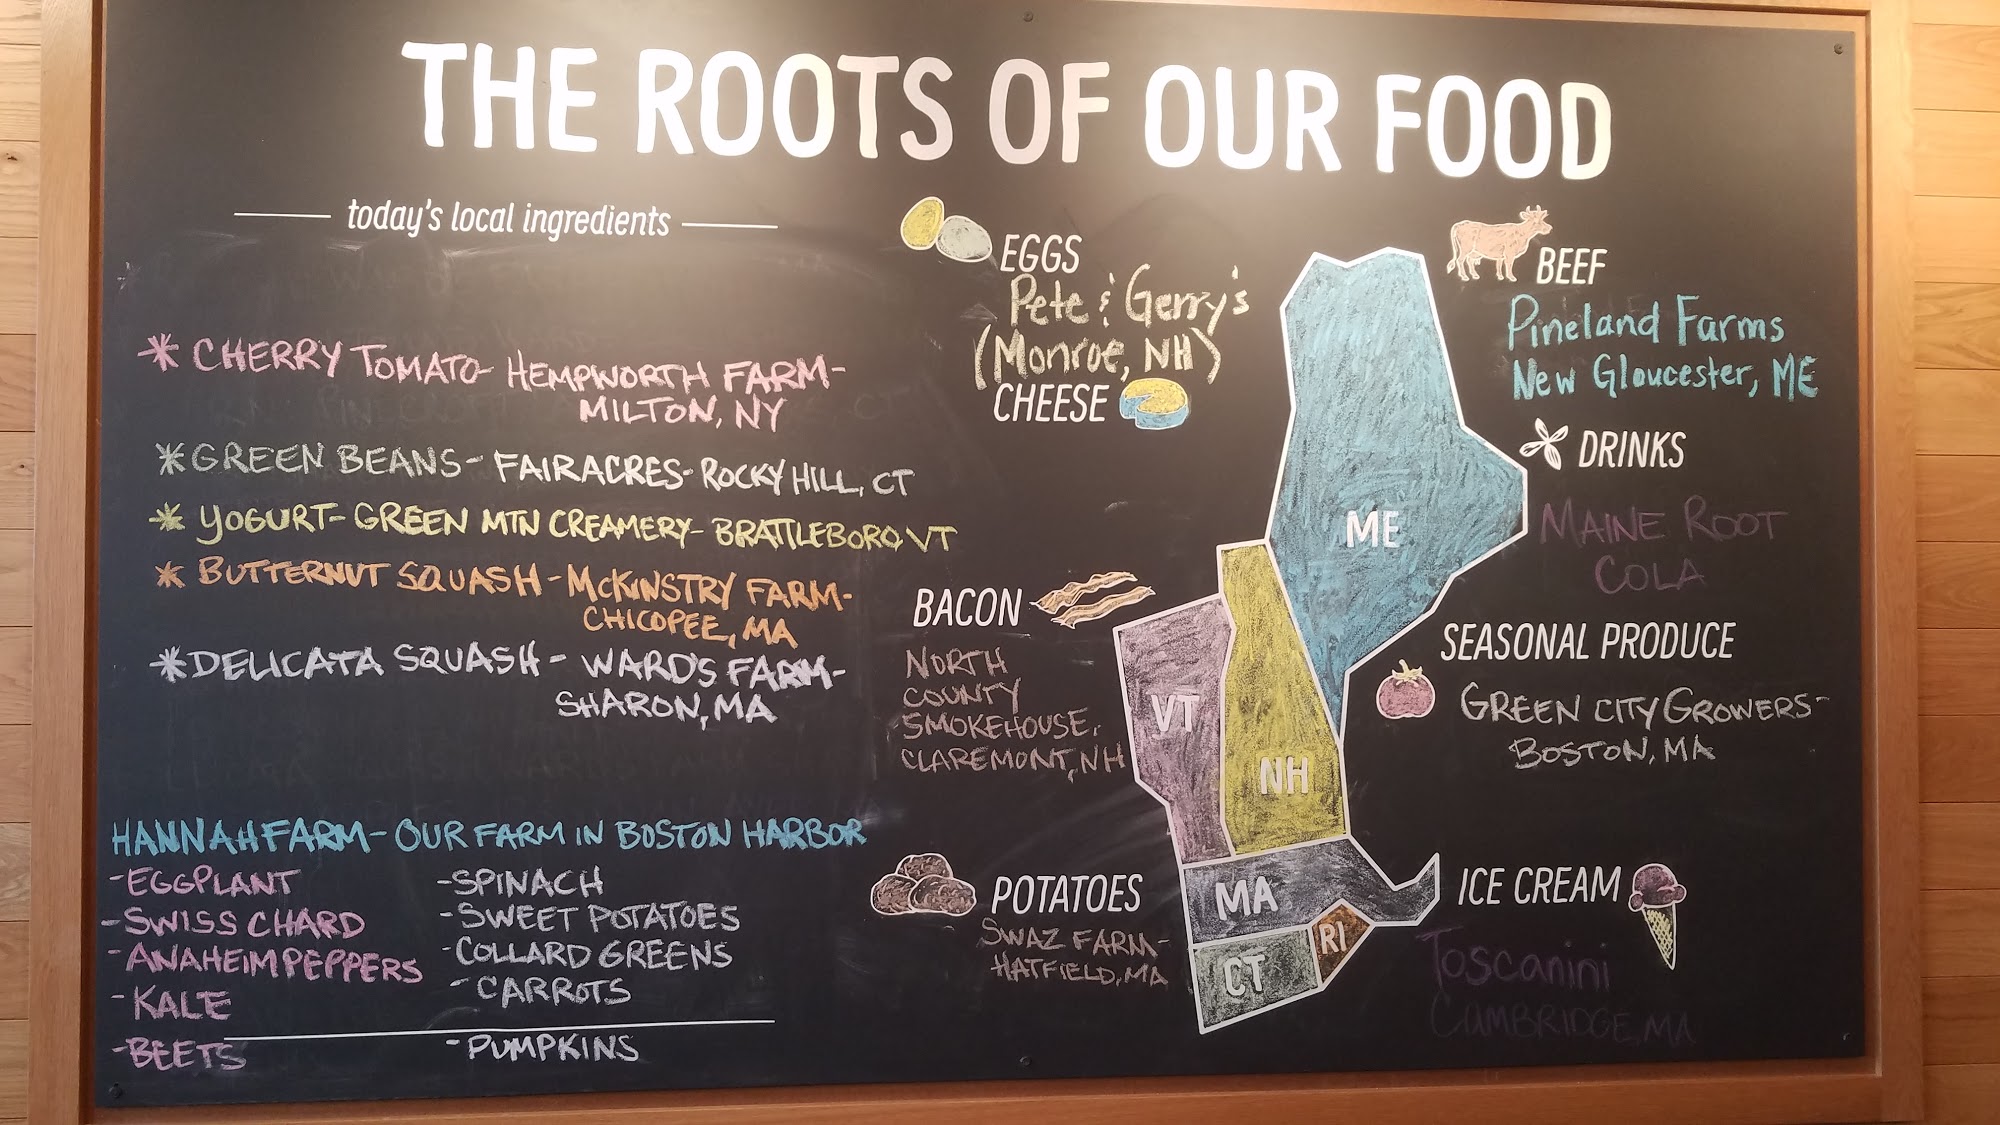 THE ROOTS OF OUR FOOD
today's local ingredients
* CHERRY TOMATO- HEMPWORTH FARM-
MILTON, NY
* GREEN BEANS- FAIRACRES- ROCKY HILL, CT
* YOGURT- GREEN MTN CREAMERY- BRATTLEBORO, VT
* BUTTERNUT SQUASH - McKINSTRY FARM-
CHICOPEE, MA
* DELICATA SQUASH - WARD'S FARM-
SHARON, MA
HANNAH FARM- OUR FARM IN BOSTON HARBOR
-EGGPLANT
-SWISS CHARD
-ANAHEIM PEPPERS
-KALE
-BEETS
-SPINACH
-SWEET POTATOES
-COLLARD GREENS
-CARROTS
-PUMPKINS
EGGS
Pete & Gerry's
(Monroe, NH)
CHEESE
BACON
NORTH
COUNTY
SMOKEHOUSE,
CLAREMONT, NH
POTATOES
SWAZ FARM-
HATFIELD, MA
ME
VT
NH
MA
CT
RI
BEEF
Pineland Farms
New Gloucester, ME
DRINKS
MAINE ROOT
COLA
SEASONAL PRODUCE
GREEN CITY GROWERS-
BOSTON, MA
ICE CREAM
Toscanini
CAMBRIDGE, MA